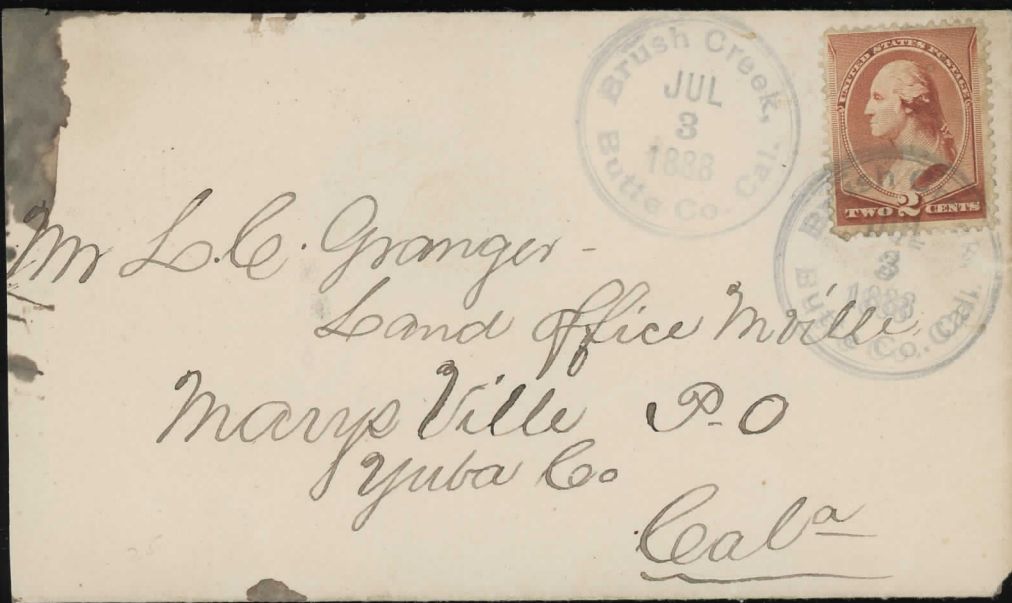 Brush Creek,
JUL
3
1888
Butte Co. Cal.
UNITED STATES POSTAGE
TWO 2 CENTS
3
1888
Butte Co. Cal.
Mr L.C. Granger -
Land Office Mville
Marys Ville P.O
Yuba Co
Cala